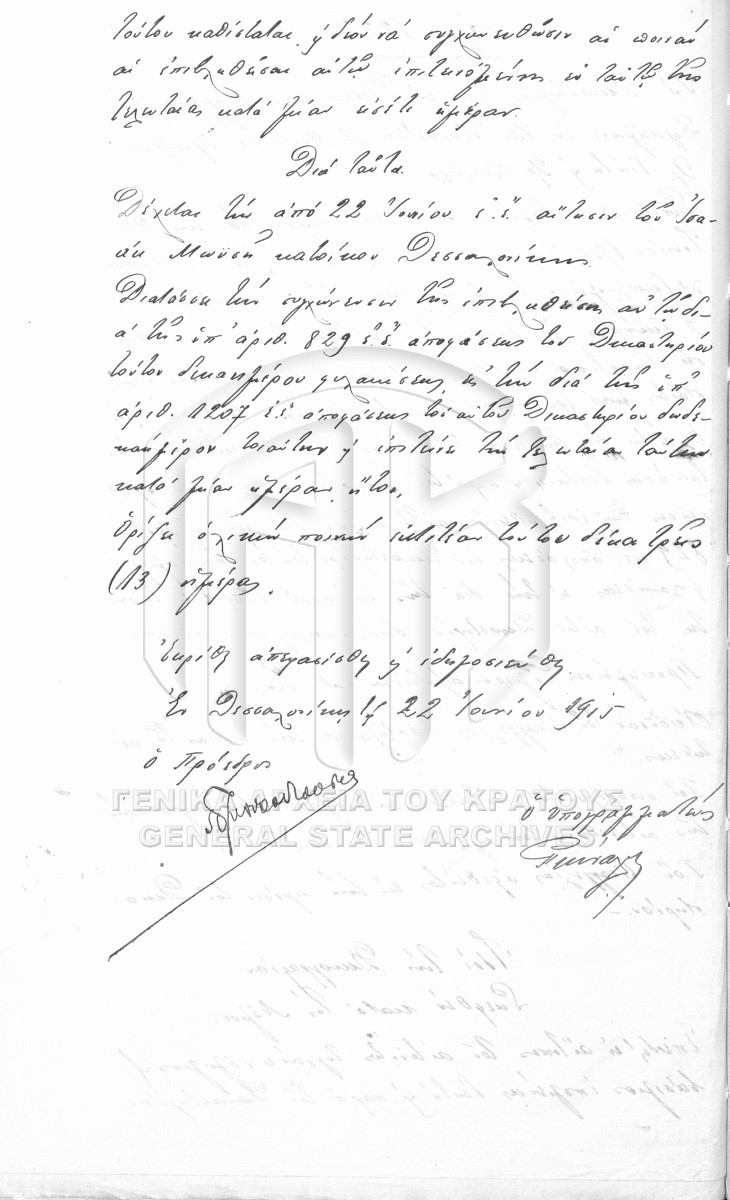 τούτου καθίσταται, ἤ δέον νά συγχωνευθῶσιν αἱ ποιναί
αἱ ἐπιβληθεῖσαι αὐτῷ ἐπιτεινομένης ἐν ταὐτῷ τῆς
τελευταίας κατά μίαν εἰσέτι ἡμέραν.
Διά ταῦτα.
Δέχεται τήν ἀπό 22 Ἰουνίου ἐ.ἔ. αἴτησιν τοῦ Ἰσα-
άκ Μωϋσῆ κατοίκου Θεσσαλονίκης.
Διατάσσει τήν συγχώνευσιν τῆς ἐπιβληθείσης αὐτῷ δι-
ά τῆς ὑπ' ἀριθ. 829 ἐ.ἔ. ἀποφάσεως τοῦ Δικαστηρίου
τούτου δεκαημέρου φυλακίσεως, εἰς τήν διά τῆς ὑπ'
ἀριθ. 1207 ἐ.ἔ. ἀποφάσεως τοῦ αὐτοῦ Δικαστηρίου δωδε-
καήμερον τοιαύτην ἤ ἐπιτείνει τήν τελευταίαν ταύτην
κατά μίαν ἡμέραν, ἤτοι,
Ὁρίζει ὁλικήν ποινήν ἐκτιτέαν τούτου δέκα τρεῖς
(13) ἡμέρας.
Ἐκρίθη ἀπεφασίσθη ἤ ἐδημοσιεύθη
Ἐν Θεσσαλονίκῃ τῇ 22 Ἰουνίου 1915
ὁ Πρόεδρος
Ὁ ὑπογραμματεύς
ΓΕΝΙΚΑ ΑΡΧΕΙΑ ΤΟΥ ΚΡΑΤΟΥΣ
GENERAL STATE ARCHIVES